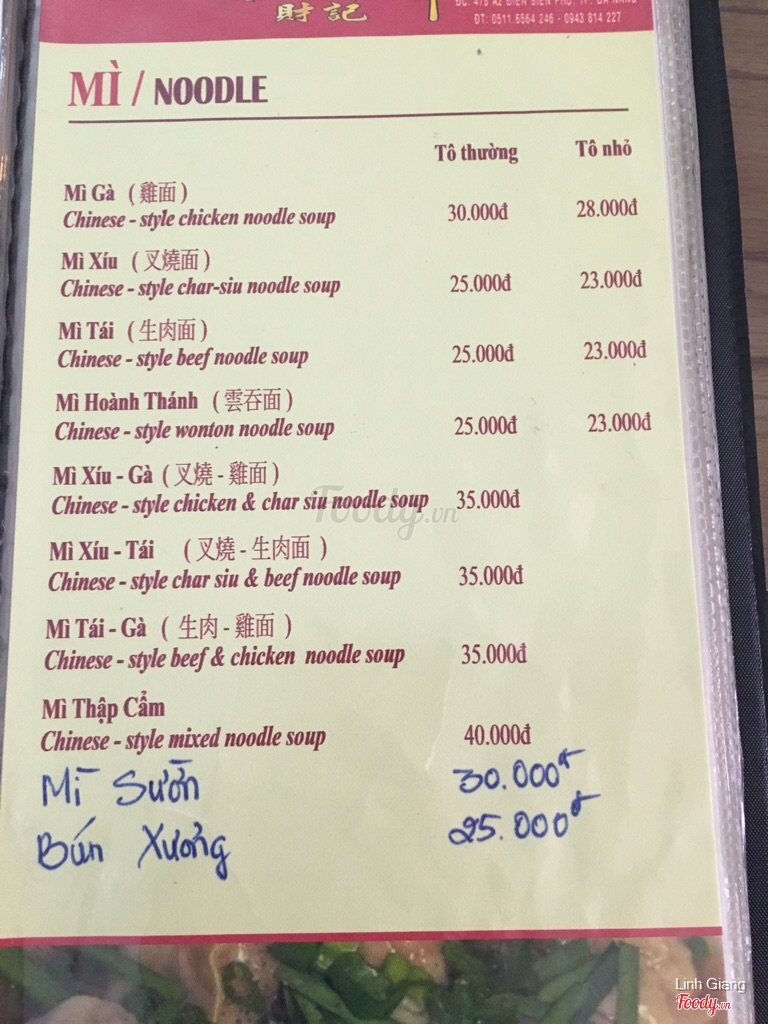 財記
ĐT: 0511.6564 246 - 0943 814 227
MÌ / NOODLE
Tô thường Tô nhỏ
Mì Gà (雞面)
Chinese - style chicken noodle soup 30.000đ 28.000đ
Mì Xíu (叉燒面)
Chinese - style char-siu noodle soup 25.000đ 23.000đ
Mì Tái (生肉面)
Chinese - style beef noodle soup 25.000đ 23.000đ
Mì Hoành Thánh (雲吞面)
Chinese - style wonton noodle soup 25.000đ 23.000đ
Mì Xíu - Gà (叉燒 - 雞面)
Chinese - style chicken & char siu noodle soup 35.000đ
Foody.vn
Mì Xíu - Tái (叉燒 - 生肉面)
Chinese - style char siu & beef noodle soup 35.000đ
Mì Tái - Gà (生肉 - 雞面)
Chinese - style beef & chicken noodle soup 35.000đ
Mì Thập Cẩm
Chinese - style mixed noodle soup 40.000đ
Mì Sườn 30.000đ
Bún Xưởng 25.000đ
Linh Giang
Foody.vn